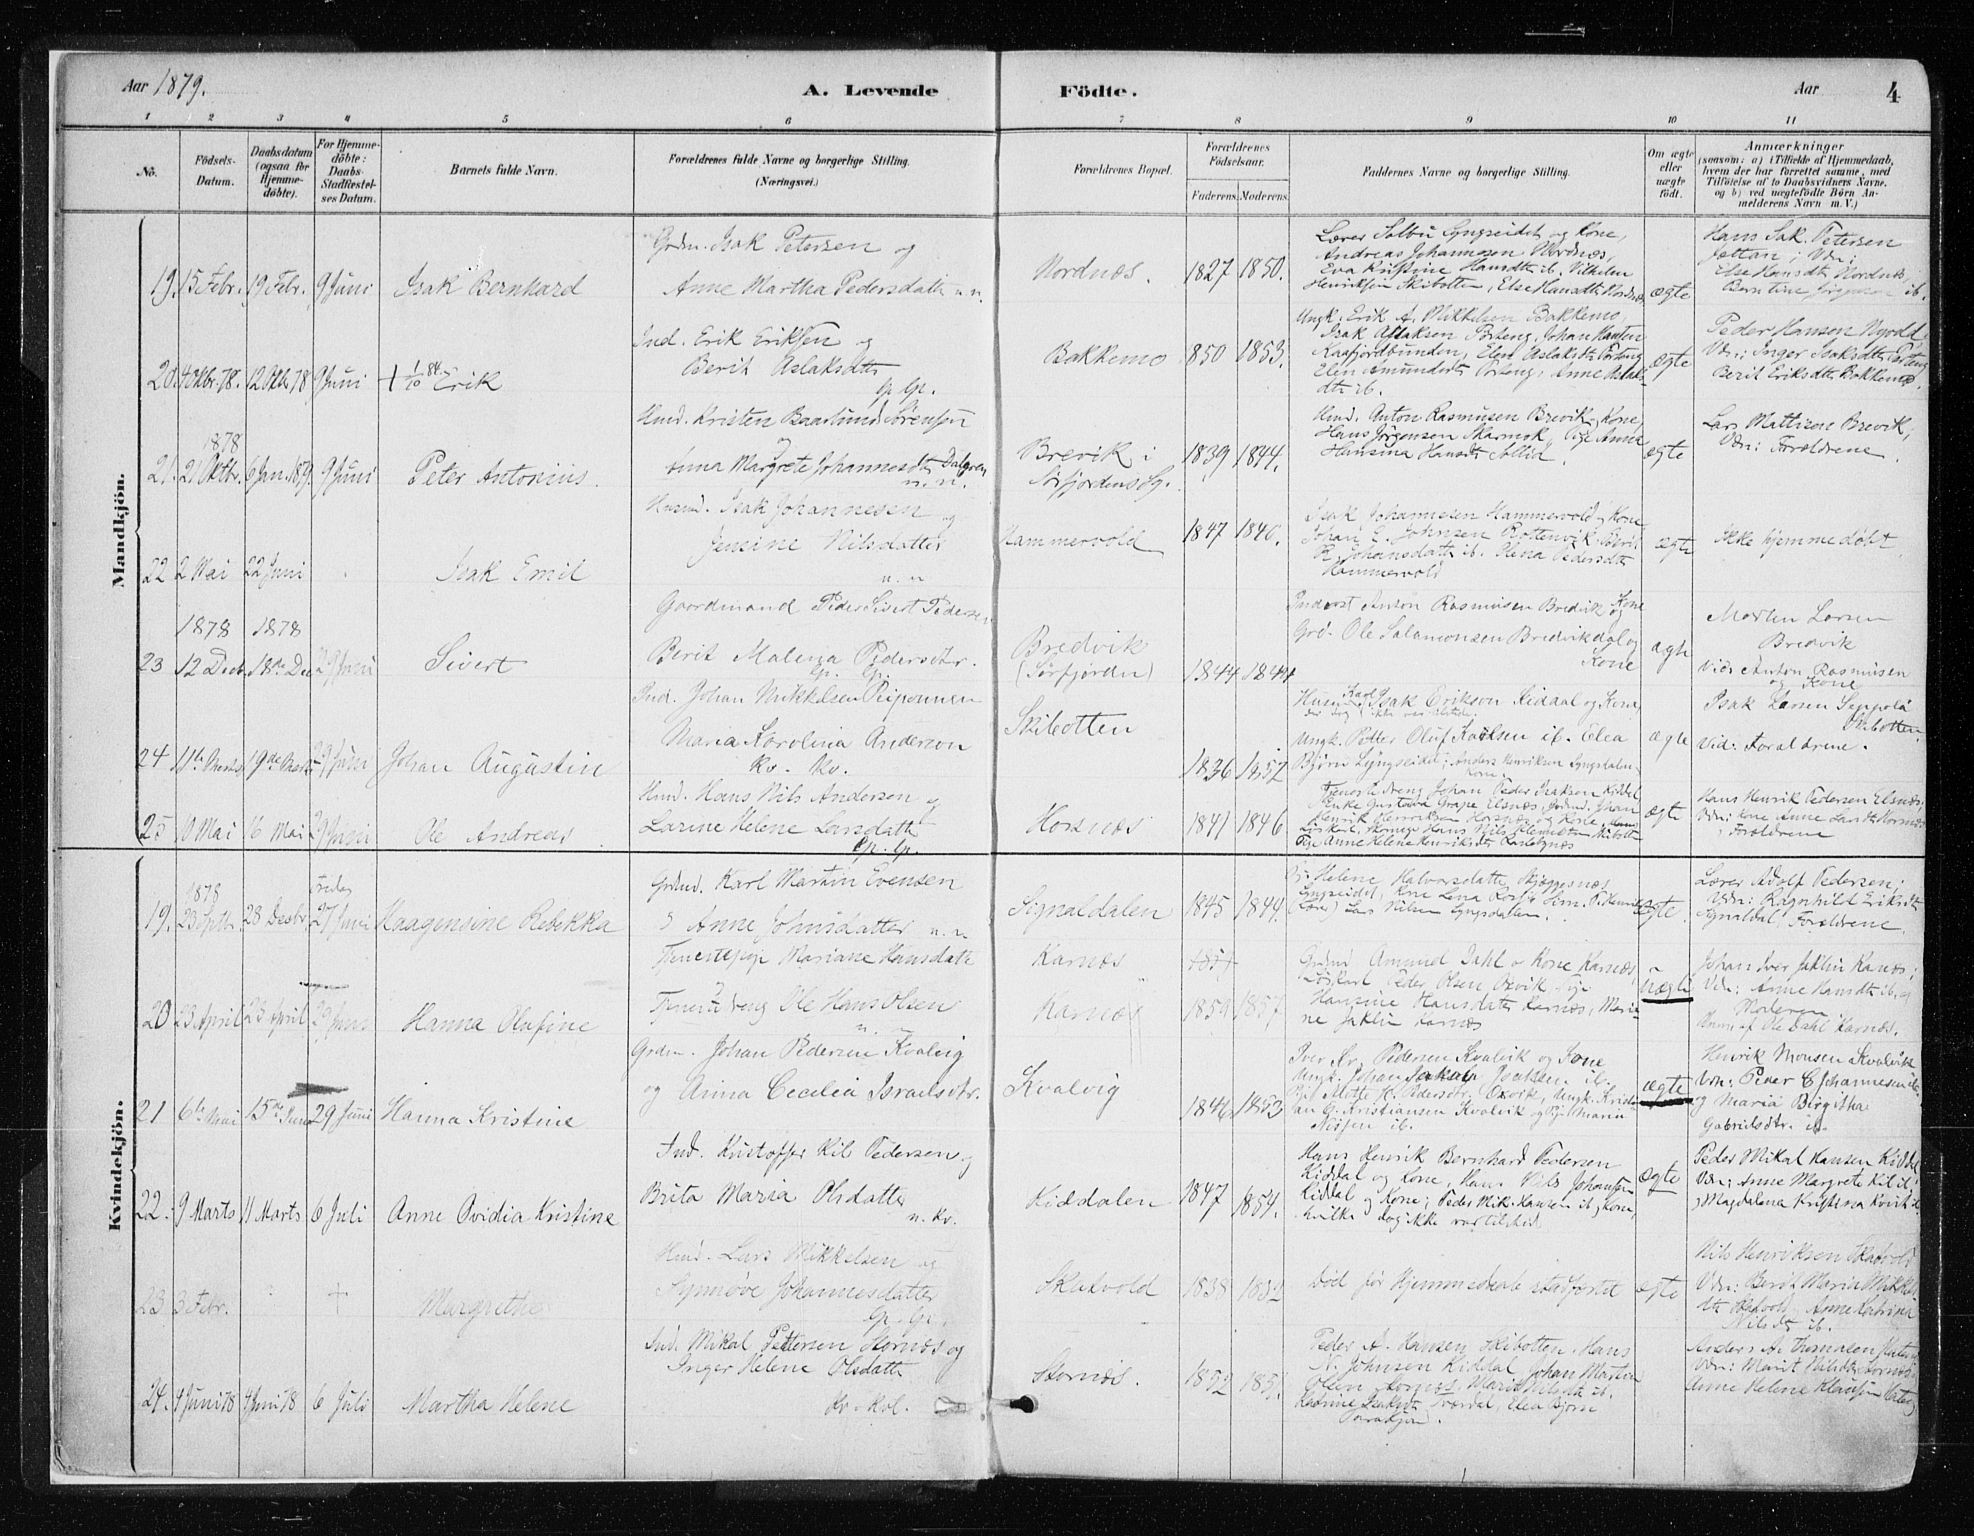 Aar 1879.
A. Levende Födte.
Aar
4
1 2 3 4 5 6 7 8 9 10 11
No.
Födsels-
Datum.
Daabsdatum
(ogsaa for
Hjemme-
döbte).
For Hjemme-
döbte:
Daabs-
Stadfæstel-
ses Datum.
Barnets fulde Navn.
Forældrenes fulde Navne og borgerlige Stilling.
(Næringsvei.)
Forældrenes Bopæl.
Forældrenes
Födselsaar.
Faderens. Moderens.
Faddernes Navne og borgerlige Stilling.
Om ægte
eller
uægte
födt.
Anmærkninger
(saasom: a) i Tilfælde af Hjemmedaab,
hvem der har forrettet samme, med
Tilföielse af to Daabsvidners Navne,
og b) ved uægtefödte Börn An-
melderens Navn m. V.)
Mandkjön.
19. 15 Febr. 19 Febr. 9 Juni Isak Bernhard
Grdm. Isak Petersen og
Anne Martha Pedersdatt n.n.
Nordnæs. 1827 1850.
Lærer Solbu Lyngseidet og Kone,
Andreas Johannesen Nordnæs,
Eva Kristine Hansdtr ib. Vilhelm
Henriksen Skibotten, Else Hansdtr Nordnæs
ægte
Hans Isak Petersen
Vdn:
Else Hansdt Nordnæs,
20. 4 Oktbr. 78. 12 Oktb. 78 9 Juni + 1/10 84 Erik
Ind. Erik Eriksen og
Berit Aslaksdtr
Gp. Gp.
Bakkemo 1850 1853.
Ungk. Erik A. Mikkelsen Bakkemo,
Isak Aslaksen Porteng, Johan Hansen
Kaafjordbunden, Elen Aslaksdtr Porteng
Elen Amundsdt Porteng, Anne Aslaks-
dtr ib.
ægte
Peder Hansen
Vdn: Inger Isaksdtr Porteng
Berit Eriksdtr Bakkemo.
21. 1878
21 Oktbr. 6 Jan. 1879. 9 Juni Peter Antonius.
Hmd. Kristen Baarlund Sørensen
Anna Margrete Johannesdtr Dalgren
n.n.
Brevik i
Sørfjorden 1839 1844.
Hmd. Anton Rasmusen Brevik, Kone,
Hans Jørgensen Skarmok, Pige Anna
Hansina Hansdt Sollid.
ægte
Lars Mattisen Brevik,
Vdn: Forældrene.
22 2 Mai 22 Juni Isak Emil
Husmd. Isak Johannesen og
Jensine Nilsdatter
n.n
Hammervold 1847 1840.
Isak Johannesen Hammervold og Kone
Johan E. Johnsen Rottenvik,
Johansdatt ib. Elena Pedersdt
Hammervold
ægte
Ikke hjemmedøbt.
23 1878 1878
12 Decb. 18de Dec 29 Juni Sivert
Gaardmand Peder Sivert Pedersen
Berit Malena Pedersdtr.
Gp. Gp.
Bredvik
(Sørfjorden) 1844 1844
Inderst Anton Rasmusen Bredvik og Kone
Grd. Ole Salamonsen Bredvikdal og
Kone
ægte
Morten Larsen
Bredvik
Vid: Anton Rasmusen
og Kone
24 11te Marts 19de Marts 29 Juni Johan Augustin
Ind. Johan Mikkelsen Peiponnen
Maria Karolina Anderson
Kv. Kv.
Skibotten 1836 1857
Husm. Karl Isak Erikson Kidaal og Kone,
der dog ikke var tilstede,
Ungk. Petter Oluf Karlsen ib. Elea
Bjørn Lyngseidet; Anders Henriksen Lyngsdalen,
Kone.
ægte
Isak Larsen Seppola
Skibotten.
Vid: Forældrene.
25 10 Mai 16 Mai 29 Juni Ole Andreas
Hmd. Hans Nils Andersen og
Larine Helene Larsdatter
Gp. Gp.
Horsnæs 1841 1846
Tjenestedreng Johan Peder Isaksen Kiddal
Enke Gustava Grape Elsnæs, Johan
Henrik Henriksen Horsnæs og Kone,
Pige Anne Helene Henriksdtr
ægte
Hans Henrik Pedersen Elsnæs;
Vdn: Kone Anne Larsdt Horsnæs
Forældrene
Kvindekjön.
19. 1878
23 Septb. 28 Decbr. fredag 27 Juni Haagensine Rebekka
Grdmd. Karl Martin Evensen
Anne Johnsdatter n.n
Signaldalen 1845 1844.
Helene Halvorsdatter Skjæggesnæs
Lyngseidet, Lars Nilsen Lyngsdalen.
ægte.
Lærer Adolf Pedersen;
Vdn: Ragnhild Eriksdt
Signaldal, Forældrene.
20 23 April 23 April 29 Juni Hanna Olufine
Tjenestepige Mariane Hansdatt
Tjenestedreng Ole Hans Olsen
n. n
Karnæs
Karnæs 1859 1857.
Grdmd Amund Dahl og Kone Karnæs,
Løskarl Peder Olsen Oxvik, Pige
Hansine Hansdatt Karnæs, Maria-
ne Jaklin Karnæs
uægte
Johan Iver Jaklin Karnæs;
Vdn: Anne Hansdtr ib. og
Moderen
Anm. af Ole Dahl Karnæs.
21 6te Mai 15de Juni 29 Juni Hanna Kristine
Grdm. Johan Pedersen Kvalvig
og Anna Cecelia Israelsdtr.
Kvalvig 1846 1853
Iver Av. Pedersen Kvalvik og Kone
Ungk. Johan Jakob Isaksen ib.
Pedersdtr. Oxvik, Ungk. Kristi-
an G. Kristiansen Kvalvik og Maria
ib.
ægte
Henrik Monsen Kvalvik
Vdn: Peder C Johannesen ib.
og Maria Birgitha
Gabrielsdtr. ib.
22. 9 Marts 11 Marts 6 Juli Anne Ovidia Kristine
Ind. Kristoffer Kil Pedersen og
Brita Maria Olsdatter
n. Kv.
Kiddalen 1847 1854.
Hans Henrik Bernhard Pedersen
Kiddal og Kone, Hans Nils Johansen
Kiddal og Kone; Peder Mik. Hansen ib og Kone,
hvilke dog ikke var tilsted.
ægte
Peder Mikal Hansen Kiddal
Vdn: Anne Margrete Kil ib
og Magdalena Kristina Kvist ib
23 3 Febr. + Margrethe
Hmd. Lars Mikkelsen og
Synnøve Johannesdatter
Gp. Gp.
Skatvold 1838
Død før Hjemmedaab stadfæstet
ægte
Nils Henriksen Skatvold
Vdn: Berit Maria Mikkels-
dtr Skatvold, Anne Katrina
Nilsdt ib.
24. 4 Juni 78 4 Juni 78 6 Juli Martha Helene
Ind. Mikal Pettersen Stornæs og
Inger Helene Olsdatt
Kv. Kvl.
Stornæs. 1852
Peder A. Hansen Skibotten, Hans
N. Johnsen Kiddal, Johan Martin
Olsen Stornæs, Marit Nilsdt ib.
Katrine Isaksdt Elea Bjørn
Anders A. Thomasen
Vdn: Marit Nilsdtr Stornæs
Anne Helene Klausen